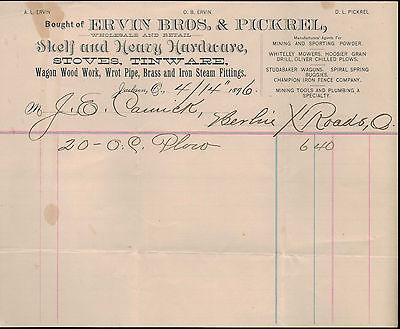 A. L. ERVIN D. B. ERVIN D. L. PICKREL
Bought of ERVIN BROS. & PICKREL,
WHOLESALE AND RETAIL
Shelf and Heavy Hardware,
STOVES, TINWARE,
Wagon Wood Work, Wrot Pipe, Brass and Iron Steam Fittings.
Manufacturers' Agents For
MINING AND SPORTING POWDER.
WHITELEY MOWERS, HOOSIER GRAIN
DRILL, OLIVER CHILLED PLOWS.
STUDEBAKER WAGONS, SPIRAL SPRING
BUGGIES,
CHAMPION IRON FENCE COMPANY.
MINING TOOLS AND PLUMBING A
SPECIALTY.
Jackson, O., 4/14" 1896.
M J. E. Carrick,
Berlin X Roads, O.
20 - O. C. Plow 6 40